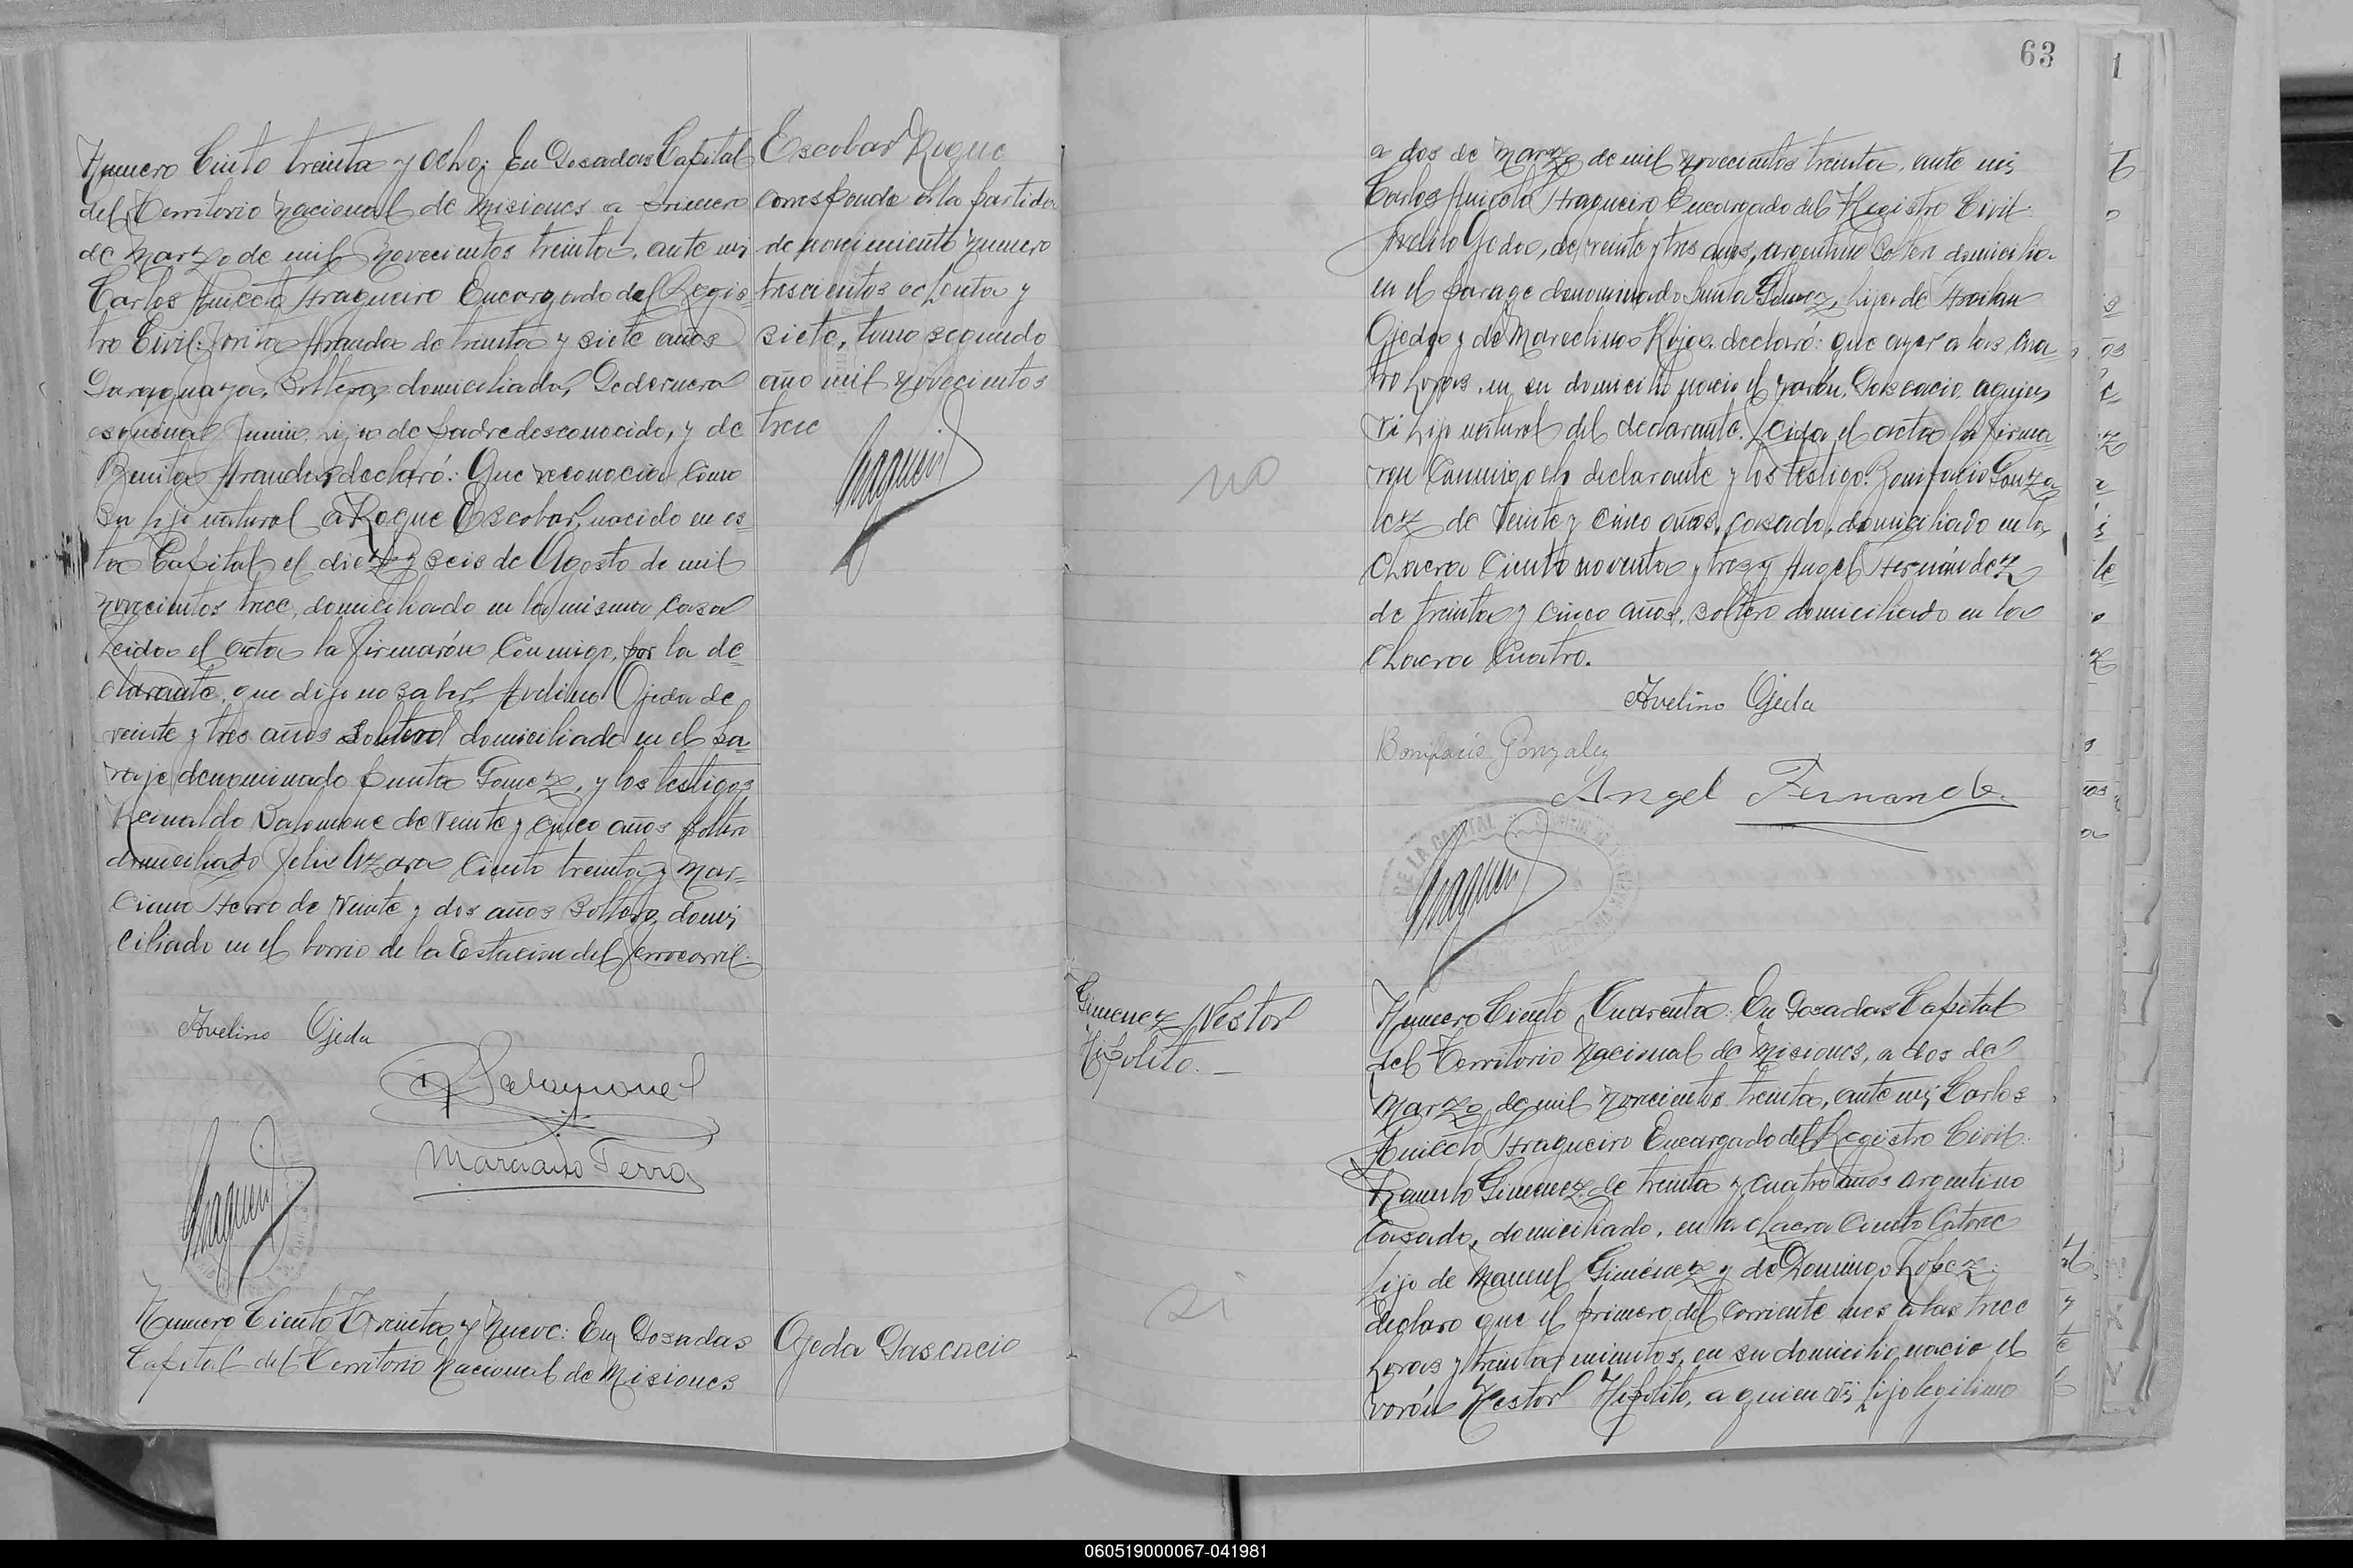 Numero Ciento treinta y ocho: En Posadas Capital
del Territorio Nacional de Misiones a primero
de Marzo de mil novecientos treinta, ante mi
Carlos Aniceto Fragueiro Encargado del Regis
tro Civil: Aranda de treinta y siete años
Paraguaya, Soltera, domiciliada, Pedernera
esquina Junin, hija de padre desconocido, y de
Benita Aranda, declaró: Que reconocia como
su hijo natural a Roque Escobar, nacido en es-
ta Capital, el diez y seis de Agosto de mil
novecientos trece, domiciliado en la misma casa
Leida el acta la firmarón conmigo, por la de-
clarante, que dijo no saber, Avelino Ojeda de
veinte y tres años soltero domiciliado en el pa-
raje denominado punta Gomez, y los testigos
Reinaldo Salomone de veinte y cinco años soltero
domiciliado Felix Azara ciento treinta y Mar-
ciano Ferro de veinte y dos años soltero, domi
ciliado en el barrio de la Estacion del ferrocarril.
Avelino Ojeda
R Salamone
Marciano Ferro
Escobar Roque
corresponde a la partida
de nacimiento numero
trescientos ochenta y
siete, tomo segundo
año mil novecientos
trece
Numero Ciento Treinta y Nueve: En Posadas
Capital del Territorio Nacional de Misiones
Ojeda
63
a dos de Marzo de mil novecientos treinta, ante mi
Carlos Aniceto Fragueiro Encargado del Registro Civil:
Avelino Ojeda, de veinte y tres años, argentino soltero domicilia-
en el parage denominado punta Gomez, hijo de Froilan
Ojeda y de Marcelina Rojas. declaró: que ayer a las cua-
tro horas, en su domicilio nacio el varón, a quien
vi hijo natural del declarante. Leida el acta la firma
ron conmigo el declarante y los testigo: Bonifacio Gonza
lez de veinte y cinco años, casado, domiciliado en la
chacra ciento noventa y tres y Angel Fernández
de treinta y cinco años, soltero domiciliado en la
chacra cuatro.
Avelino Ojeda
Bonifacio Gonzalez
Angel Fernandez
no
Gimenez Nestor
Hipolito.-
Numero Ciento Cuarenta: En Posadas Capital
del Territorio Nacional de Misiones, a dos de
Marzo de mil novecientos treinta, ante mi, Carlos
Aniceto Fragueiro Encargado del Registro Civil:
Ramulo Gimenez de treinta y cuatro años argentino
casado, domiciliado, en la chacra ciento catorce
hijo de Manuel Giménez y de Dominga Lopez:
declaro que el primero del corriente mes a las trece
horas y treinta minutos, en su domicilio nacio el
varón Nestor Hipolito, a quien vi, hijo legitimo
si
060519000067-041981